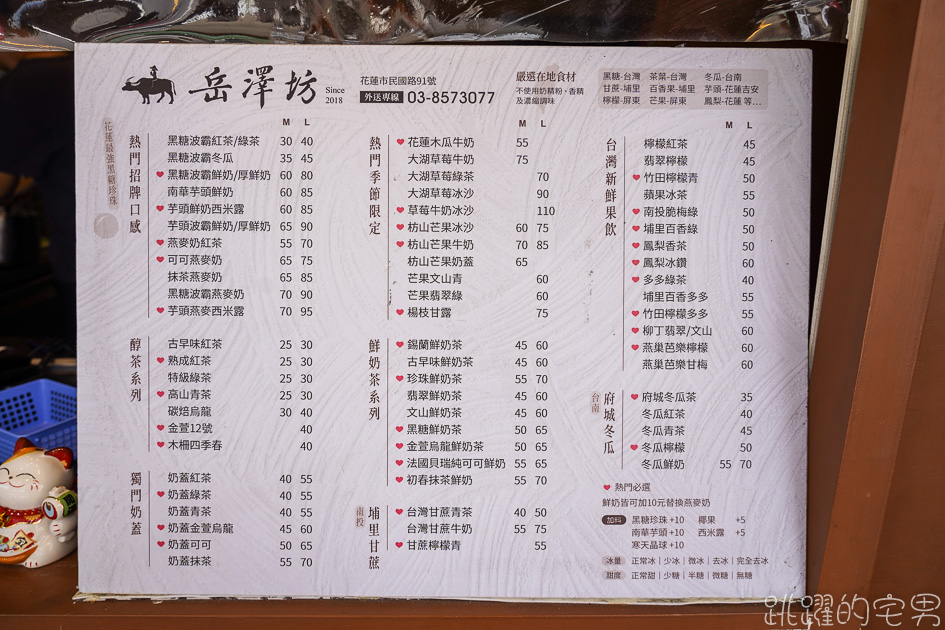 岳澤坊
Since
2018
花蓮市民國路91號
外送專線 03-8573077
嚴選在地食材
不使用奶精粉、香精
及濃縮調味
黑糖-台灣 茶葉-台灣 冬瓜-台南
甘蔗-埔里 百香果-埔里 芋頭-花蓮吉安
檸檬-屏東 芒果-屏東 鳳梨-花蓮 等...
花蓮最強黑糖珍珠
熱門招牌口感
M L
黑糖波霸紅茶/綠茶 30 40
黑糖波霸冬瓜 35 45
黑糖波霸鮮奶/厚鮮奶 60 80
南華芋頭鮮奶 60 85
芋頭鮮奶西米露 60 85
芋頭波霸鮮奶/厚鮮奶 65 90
燕麥奶紅茶 55 70
可可燕麥奶 65 75
抹茶燕麥奶 65 85
黑糖波霸燕麥奶 70 90
芋頭燕麥西米露 70 95
醇茶系列
古早味紅茶 25 30
熟成紅茶 25 30
特級綠茶 25 30
高山青茶 25 30
碳焙烏龍 30 40
金萱12號 40
木柵四季春 40
獨門奶蓋
奶蓋紅茶 40 55
奶蓋綠茶 40 55
奶蓋青茶 40 55
奶蓋金萱烏龍 45 60
奶蓋可可 50 65
奶蓋抹茶 55 70
熱門季節限定
M L
花蓮木瓜牛奶 55
大湖草莓牛奶 75
大湖草莓綠茶 70
大湖草莓冰沙 90
草莓牛奶冰沙 110
枋山芒果冰沙 60 75
枋山芒果牛奶 70 85
枋山芒果奶蓋 65
芒果文山青 60
芒果翡翠綠 60
楊枝甘露 75
鮮奶茶系列
錫蘭鮮奶茶 45 60
古早味鮮奶茶 45 60
珍珠鮮奶茶 55 70
翡翠鮮奶茶 45 60
文山鮮奶茶 45 60
黑糖鮮奶茶 50 65
金萱烏龍鮮奶茶 50 65
法國貝瑞純可可鮮奶 55 65
初春抹茶鮮奶 55 70
南投
埔里甘蔗
台灣甘蔗青茶 40 50
台灣甘蔗牛奶 55 75
甘蔗檸檬青 55
台灣新鮮果飲
M L
檸檬紅茶 45
翡翠檸檬 45
竹田檸檬青 50
蘋果冰茶 55
南投脆梅綠 50
埔里百香綠 50
鳳梨香茶 50
鳳梨冰鑽 60
多多綠茶 40
埔里百香多多 55
竹田檸檬多多 55
柳丁翡翠/文山 60
燕巢芭樂檸檬 60
燕巢芭樂甘梅 60
台南
府城冬瓜
府城冬瓜茶 35
冬瓜紅茶 40
冬瓜青茶 45
冬瓜檸檬 50
冬瓜鮮奶 55 70
熱門必選
鮮奶皆可加10元替換燕麥奶
加料 黑糖珍珠+10 椰果 +5
南華芋頭+10 西米露 +5
寒天晶球+10
冰量 正常冰|少冰|微冰|去冰|完全去冰
甜度 正常甜|少糖|半糖|微糖|無糖
跳躍的宅男